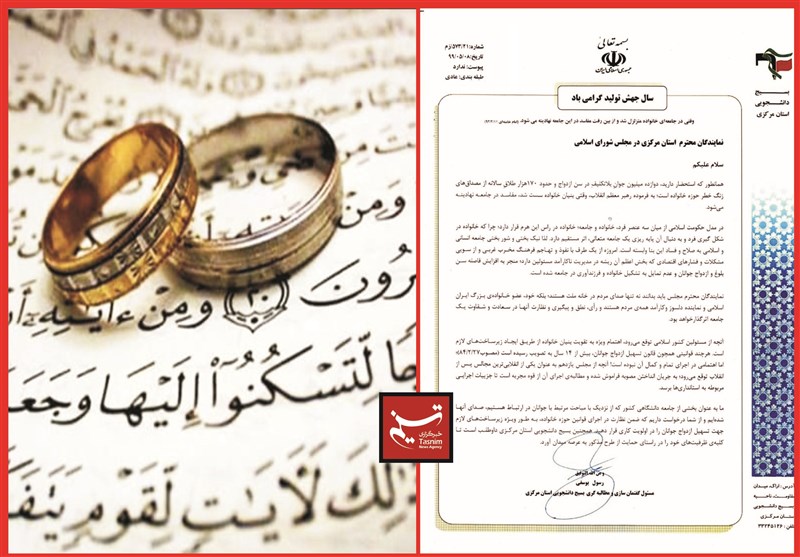 رُونَ
وَمِنْ ءَايَـٰتِهِۦ أَنْ
لِّتَسْكُنُوٓا۟ إِلَيْهَا وَجَعَلَ
ذَٰلِكَ لَـَٔايَـٰتٍ لِّقَوْمٍ يَتَفَ
تسنیم
خبرگزاری
Tasnim
News Agency
بسمه تعالی
جمهوری اسلامی ایران
شماره: ۵۷۳/۴۱/زم
تاریخ: ۹۹/۰۵/۰۸
پیوست: ندارد
طبقه بندی: عادی
بسیج
دانشجویی
استان مرکزی
سال جهش تولید گرامی باد
وقتی در جامعه‌ای خانواده متزلزل شد و از بین رفت مفاسد در این جامعه نهادینه می شود.
نمایندگان محترم استان مرکزی در مجلس شورای اسلامی
سلام علیکم
همانطور که استحضار دارید، دوازده میلیون جوان بلاتکلیف در سن ازدواج و حدود ۱۷۰هزار طلاق سالانه از مصداق‌های
زنگ خطر حوزه خانواده است؛ به فرموده رهبر معظم انقلاب، وقتی بنیان خانواده سست شد، مفاسد در جامعه نهادینه
می‌شود.
در مدل حکومت اسلامی از میان سه عنصر فرد، خانواده و جامعه؛ خانواده در راس این هرم قرار دارد؛ چرا که خانواده در
شکل گیری فرد و به دنبال آن پایه ریزی یک جامعه متعالی، اثر مستقیم دارد. لذا نیک بختی و شور بختی جامعه انسانی
و اسلامی به صلاح و فساد این بنا وابسته است. امروزه از یک طرف با نفوذ و تهاجم فرهنگ مخرب غربی و از سویی
مشکلات و فشارهای اقتصادی که بخش اعظم آن ریشه در مدیریت ناکارآمد مسئولین دارد؛ منجر به افزایش فاصله سن
بلوغ و ازدواج جوانان و عدم تمایل به تشکیل خانواده و فرزندآوری در جامعه شده است.
نمایندگان محترم مجلس باید بدانند نه تنها صدای مردم در خانه ملت هستند؛ بلکه خود، عضو خانواده‌ی بزرگ ایران
اسلامی و نماینده دلسوز وکارآمد همه‌ی مردم هستند و رأی، نطق و پیگیری و نظارت آنها در سعادت و شقاوت یک
جامعه اثرگذارخواهد بود.
آنچه از مسئولین کشور اسلامی توقع می‌رود، اهتمام ویژه به تقویت بنیان خانواده از طریق ایجاد زیرساخت‌های لازم
است. هرچند قوانینی همچون قانون تسهیل ازدواج جوانان، بیش از ۱۴ سال به تصویب رسیده است (مصوب۸۴/۲/۲۷)؛
اما اهتمامی در اجرای تمام و کمال آن نبوده است! آنچه از مجلس یازدهم به عنوان یکی از انقلابی‌ترین مجالس پس از
انقلاب توقع می‌رود؛ به جریان انداختن مصوبه فراموش شده و مطالبه‌ی اجرای آن از قوه مجریه است تا جزییات اجرایی
مربوطه به استانداری‌ها برسد.
ما به عنوان بخشی از جامعه دانشگاهی کشور که از نزدیک با مباحث مرتبط با جوانان در ارتباط هستیم، صدای آنها
شده‌ایم و از شما درخواست داریم که ضمن نظارت در اجرای قوانین حوزه خانواده، به طور ویژه زیرساخت‌های لازم
جهت تسهیل ازدواج جوانان را در اولویت کاری قرار دهید. همچنین بسیج دانشجویی استان مرکزی داوطلب است تا
کلیه‌ی ظرفیت‌های خود را در راستای حمایت از طرح مذکور به عرصه میدان آورد.
ومن الله التوفیق
رسول یوسفی
مسئول گفتمان سازی و مطالبه گری بسیج دانشجویی استان مرکزی
آدرس: اراک، میدان
مقاومت، ناحیه
بسیج دانشجویی
استان مرکزی
تلفن: ۳۳۲۴۵۱۲۶